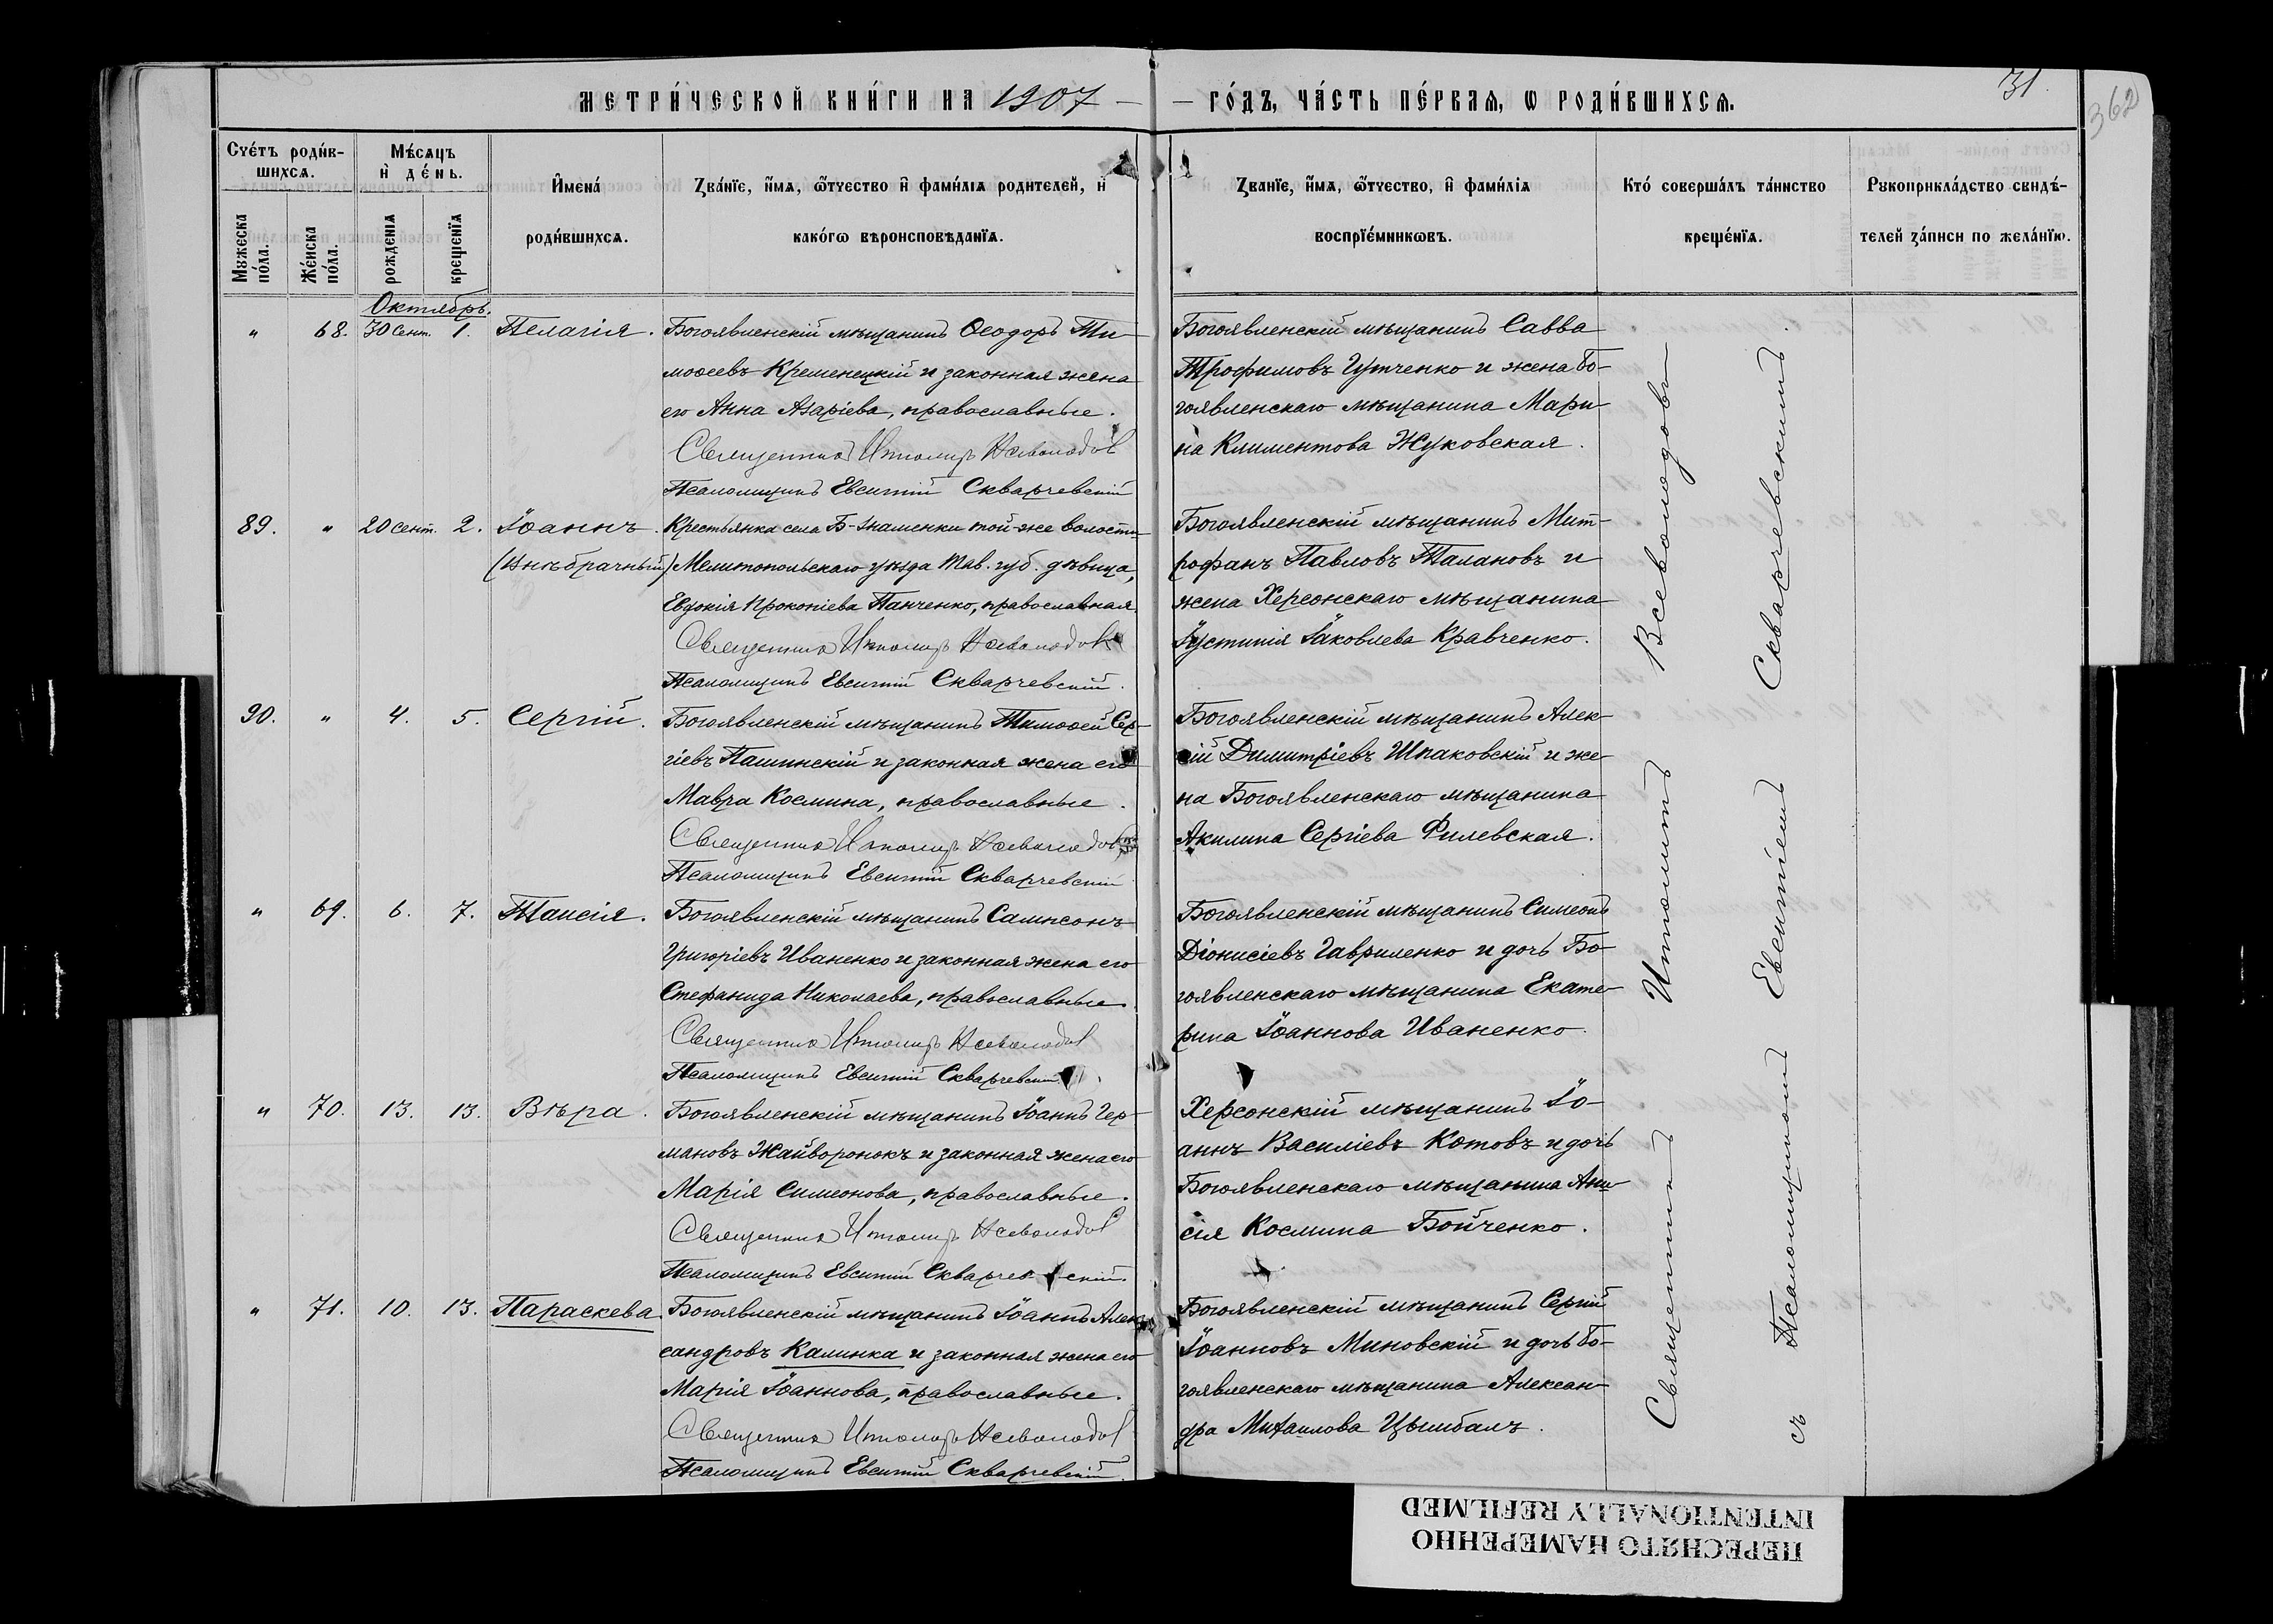 МЕТРИ́ЧЕСКОЙ КНИ́ГИ НА 1907 — — ГО́ДЪ, ЧА́СТЬ ПЕ́РВАѦ, Ѡ РОДИ́ВШИХСѦ.
31.
362
Сче́тъ роди́в-
шихсѧ.
Мужеска по́ла.
Же́нска по́ла.
Мѣ́сѧцъ
и҆ де́нь.
рожденїѧ
крещенїѧ
И҆мена́
роди́вшихсѧ.
Зва́нїе, и҆́мѧ, ѻ҆́тчество и҆ фами́лїѧ родителей, и҆
како́гѡ вѣроисповѣданїѧ.
Зва́нїе, и҆́мѧ, ѻ҆́тчество, и҆ фами́лїѧ
воспрїе́мникѡвъ.
Кто́ соверша́лъ та́инство
креще́нїѧ.
Рукоприкла́дство свидѣ́-
телей за́писи по жела́нїю.
Октябрь.
" 68. 30 Сент. 1. Пелагія.
Богоявленскій мѣщанинъ Ѳеодоръ Ти-
моѳеевъ Кременецкій и законная жена
его Анна Азаріева, православные.
Священникъ Ипполитъ Всеволодов
Псаломщикъ Евсигній Скварчевскій
Богоявленскій мѣщанинъ Савва
Трофимовъ Гутченко и жена Бо-
гоявленскаго мѣщанина Мари-
на Климентова Жуковская.
89. " 20 Сент. 2. Іоаннъ.
(Внѣбрачный)
Крестьянка села Б-Знаменки той-же волости
Мелитопольскаго уѣзда Тав. губ. дѣвица,
Евдокія Прокопіева Панченко, православная.
Священникъ Ипполитъ Всеволодов
Псаломщикъ Евсигній Скварчевскій.
Богоявленскій мѣщанинъ Мит-
рофанъ Павловъ Талановъ и
жена Херсонскаго мѣщанина
Іустинія Іаковлева Кравченко.
90. " 4. 5. Сергій.
Богоявленскій мѣщанинъ Тимоѳей Сер-
гіевъ Пашинскій и законная жена его
Мавра Космина, православные.
Священникъ Ипполитъ Всеволодов
Псаломщикъ Евсигній Скварчевскій
Богоявленскій мѣщанинъ Алек-
сій Димитріевъ Шпаковскій и же-
на Богоявленскаго мѣщанина
Акилина Сергіева Филевская.
" 69. 6. 7. Таисія.
Богоявленскій мѣщанинъ Сампсонъ
Григоріевъ Иваненко и законная жена его
Стефанида Николаева, православные.
Священникъ Ипполитъ Всеволодов
Псаломщикъ Евсигній Скварчевскій.
Богоявленскій мѣщанинъ Симеонъ
Діонисіевъ Гавриленко и дочь Бо-
гоявленскаго мѣщанина Екате-
рина Іоаннова Иваненко.
" 70. 13. 13. Вѣра.
Богоявленскій мѣщанинъ Іоаннъ Гер-
мановъ Жайворонокъ и законная жена его
Марія Симеонова, православные.
Священникъ Ипполитъ Всеволодов
Псаломщикъ Евсигній Скварчевскій.
Херсонскій мѣщанинъ Іо-
аннъ Василіевъ Котовъ и дочь
Богоявленскаго мѣщанина Ани-
сія Космина Бойченко.
" 71. 10. 13. Параскева.
Богоявленскій мѣщанинъ Іоаннъ Алек-
сандровъ Калинка и законная жена его
Марія Іоаннова, православные.
Священникъ Ипполитъ Всеволодов
Псаломщикъ Евсигній Скварчевскій.
Богоявленскій мѣщанинъ Сергій
Іоанновъ Миновскій и дочь Бо-
гоявленскаго мѣщанина Алексан-
дра Михаилова Цымбалъ.
Священникъ Ипполитъ Всеволодовъ
съ Псаломщикомъ Евсигніемъ Скварчевскимъ.
ПЕРЕСНЯТО НАМЕРЕННО
INTENTIONALLY REFILMED